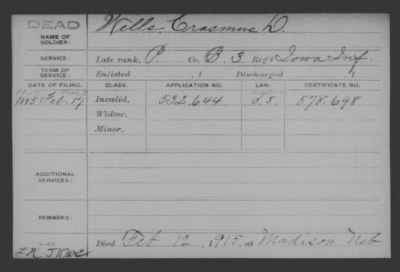 DEAD
NAME OF SOLDIER: Wells Erasmus D.
SERVICE: Late rank, P. Co. B. 3 Reg't Iowa Inf.
TERM OF SERVICE: Enlisted , 1 Discharged , 1
DATE OF FILING. CLASS. APPLICATION NO. LAW. CERTIFICATE NO.
1885 Feb. 17 Invalid, 532.644 578.698
Widow,
Minor,
ADDITIONAL SERVICES:
REMARKS:
Died Feb 12, 1915, at Madison Neb